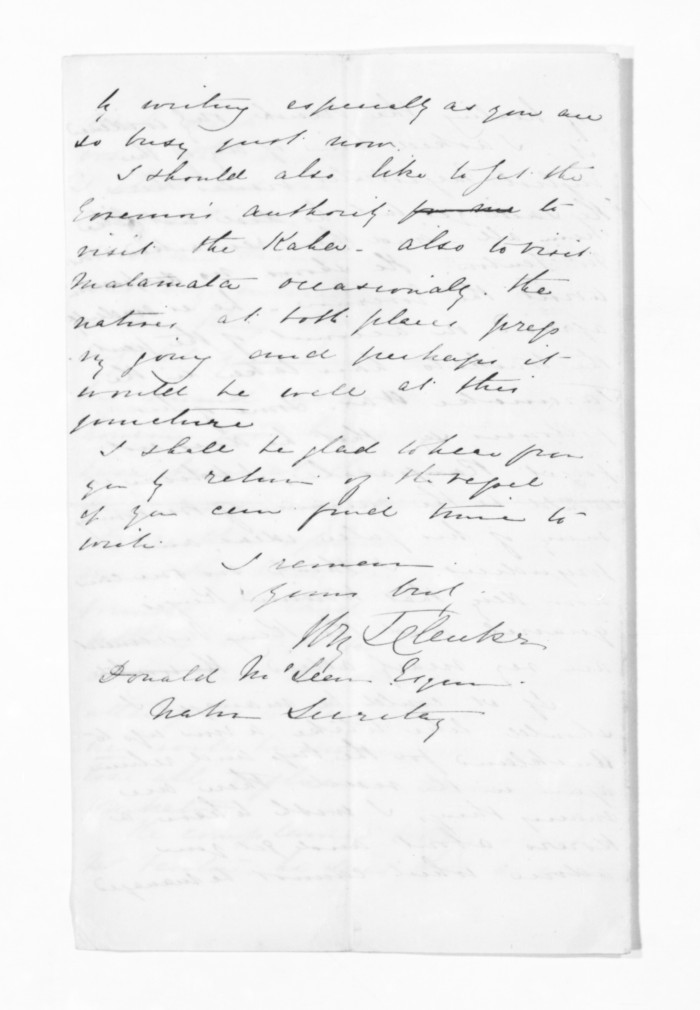 by writing especially as you are
so busy just now.
I should also like to get the
Governor's authority for me to
visit the Kaha - also to visit
Matamata occasionaly. the
natives at both places press
my going and perhaps it
would be well at this
juncture
I shall be glad to hear from
you by return of the vessel
if you can find time to
write
I remain
yours truly
Clarke
Donald McLean Esquire
Native Secretary